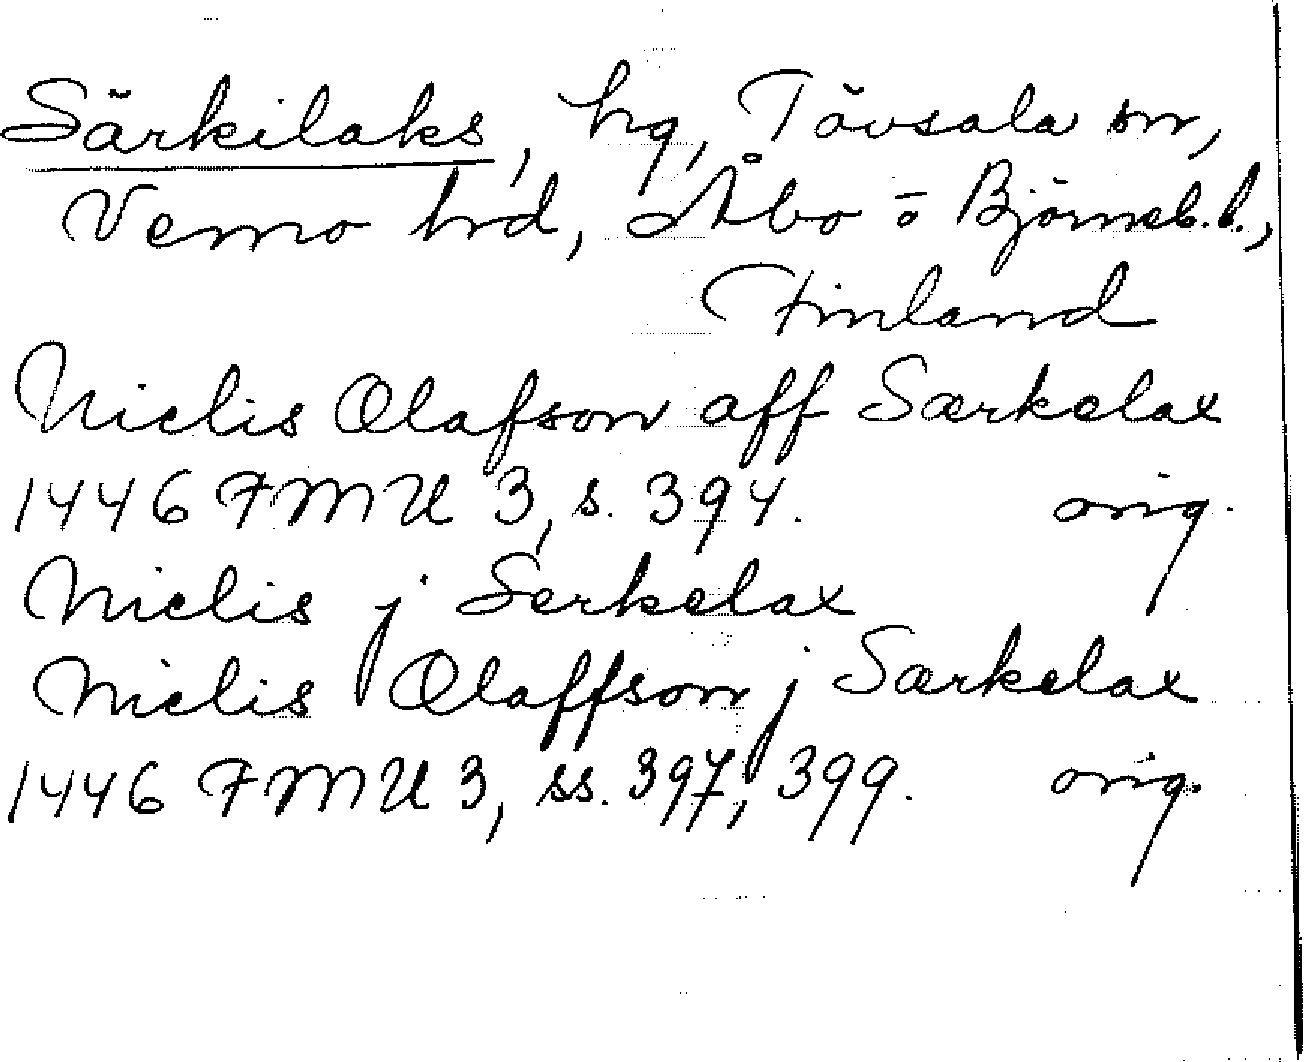 Särkilaks, hg, Tövsala sn,
Vemo hrd, Åbo o Björneb. l.,
Finland
Niclis Olafson aff Særkelax
1446 FMU 3, s. 394. orig.
Niclis j Serkelax
Niclis Olaffson j Særkelax
1446 FMU 3, ss. 397, 399. orig.